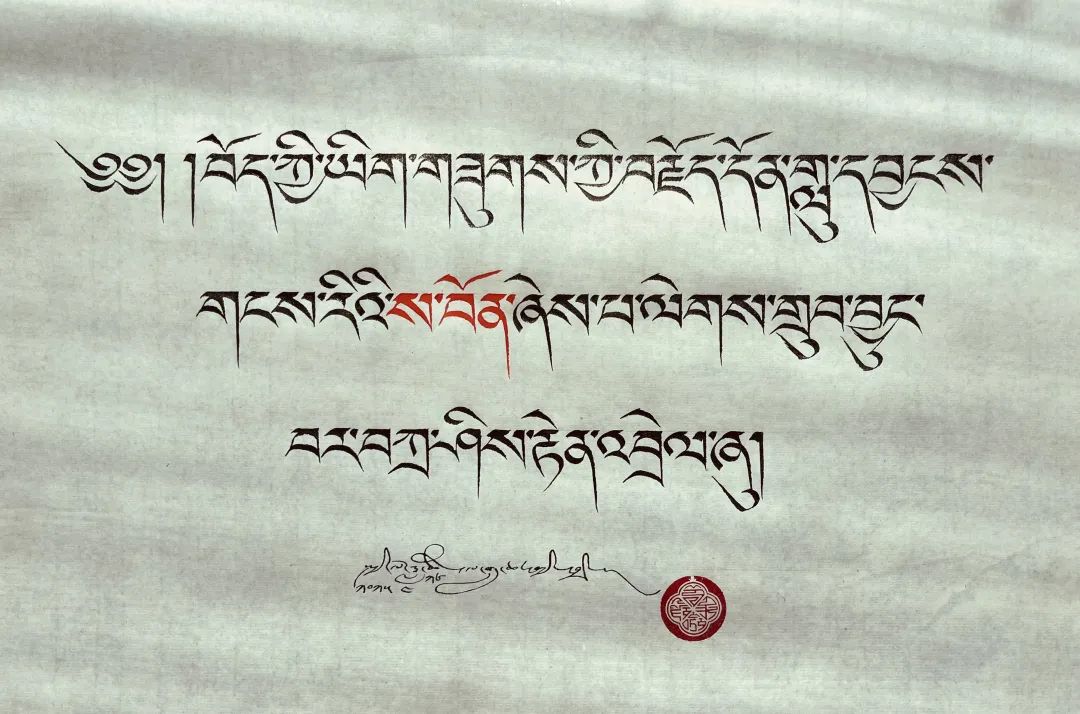 ༄༅། །བོད་ཀྱི་ཡིག་གཟུགས་ཀྱི་བརྗོད་དོན་གླུ་དབྱངས་
གངས་རིའི་ས་བོན་ཞེས་པ་ལེགས་གྲུབ་བྱུང་
བར་བཀྲ་ཤིས་རྟེན་འབྲེལ་ཞུ།